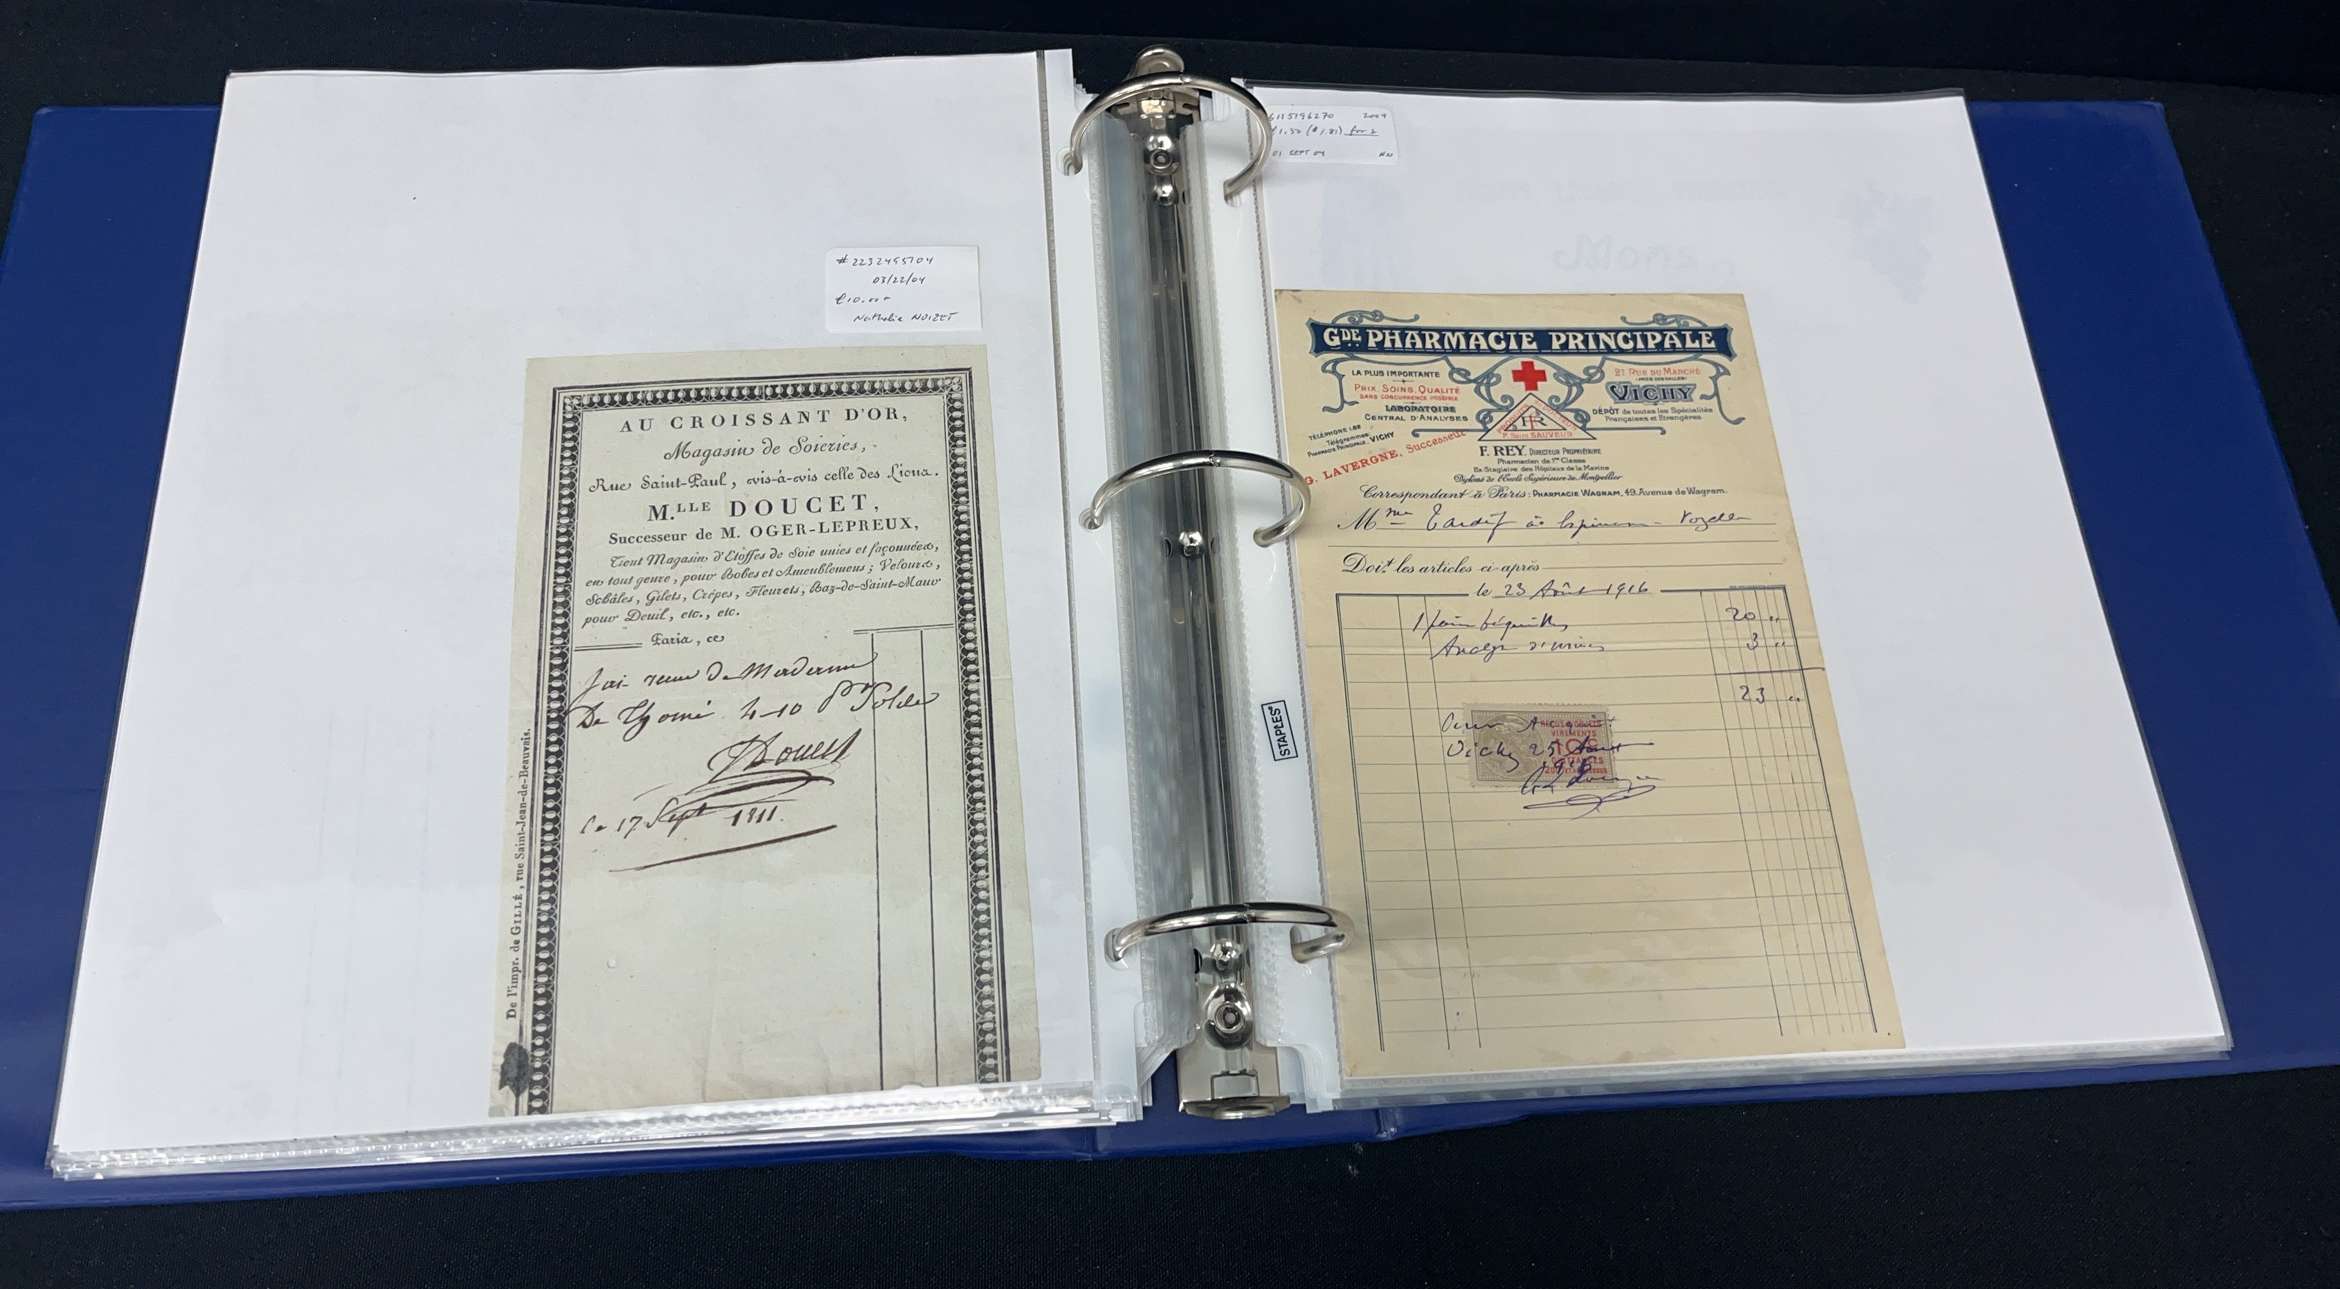 #2232495704
03/22/04
€10.00+
Nathalie NOIZET
AU CROISSANT D'OR,
Magasin de Soieries,
Rue Saint-Paul, vis-à-vis celle des Lions.
M.LLE DOUCET,
Successeur de M. OGER-LEPREUX,
Tient Magasin d'Etoffes de Soie unies et façonnées,
en tout genre, pour Robes et Ameublemens; Velours,
Schâles, Gilets, Crêpes, Fleurets, Raz-de-Saint-Maur
pour Deuil, etc., etc.
Paris, ce
J'ai reçu de Madame
De Thomé 4-10 Pr Solde
Doucet
Le 17 Sept 1811.
De l'impr. de GILLÉ, rue Saint-Jean-de-Beauvais.
6115196270 2004
for 2
01 SEPT 04
STAPLES
GDE PHARMACIE PRINCIPALE
LA PLUS IMPORTANTE
PRIX, SOINS, QUALITÉ
SANS CONCURRENCE POSSIBLE
LABORATOIRE
CENTRAL D'ANALYSES
TÉLÉPHONE 1.88
Télégrammes:
PHARMACIE PRINCIPALE, VICHY
G. LAVERGNE, Successeur
21 RUE DU MARCHÉ
VICHY
DÉPÔT de toutes les Spécialités
Françaises et Etrangères
F. REY, DIRECTEUR PROPRIÉTAIRE
Pharmacien de 1re Classe
Ex-Stagiaire des Hôpitaux de la Marine
Diplômé de l'École Supérieure de Montpellier
Correspondant à Paris: PHARMACIE WAGRAM, 49, Avenue de Wagram.
Mme Tardif à
Doit les articles ci-après
le 23 Août 1916
1 20 "
Analyse 3 "
23 "
Pour Acquit
Vichy 25 Août
1916